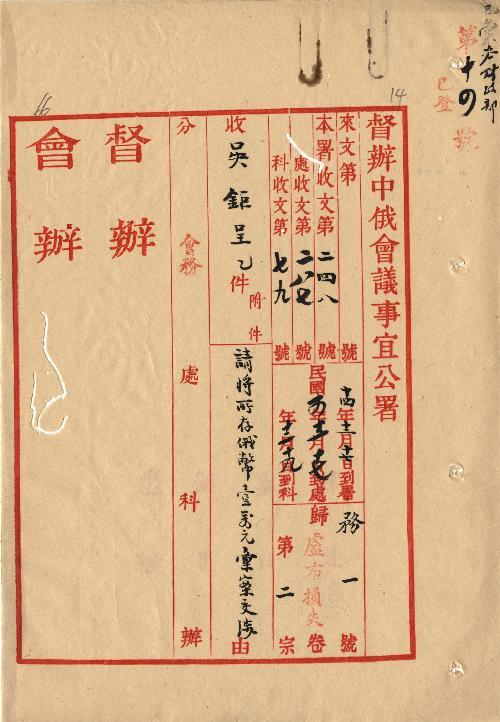 已登
第十四號
14
66
督辦中俄會議事宜公署
來文第 號
本署收文第二四八號
處收文第二八七號
科收文第七九號
年 月 日到署
民國 年 月 日到處
年 月 日到科
歸 務 一 號
盧布損失卷
第二宗
收 吳鉅呈乙件 附件
請將所存俄幣壹萬元彙案交涉 由
分 會務 處 科 辦
督辦
會辦